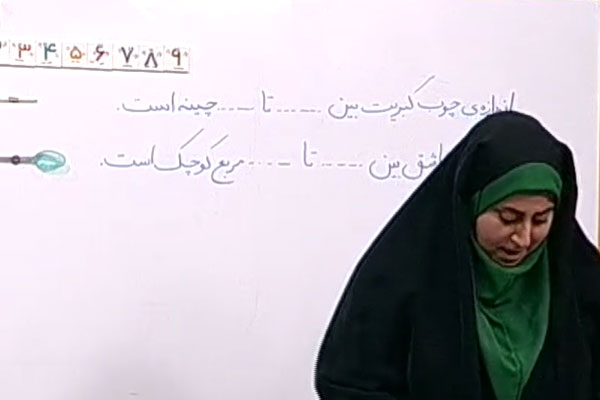 ۳ ۴ ۵ ۶ ۷ ۸ ۹
اندازه‌ی چوب کبریت بین ...... تا ...... چینه است.
قاشق بین ...... تا ...... مربع کوچک است.